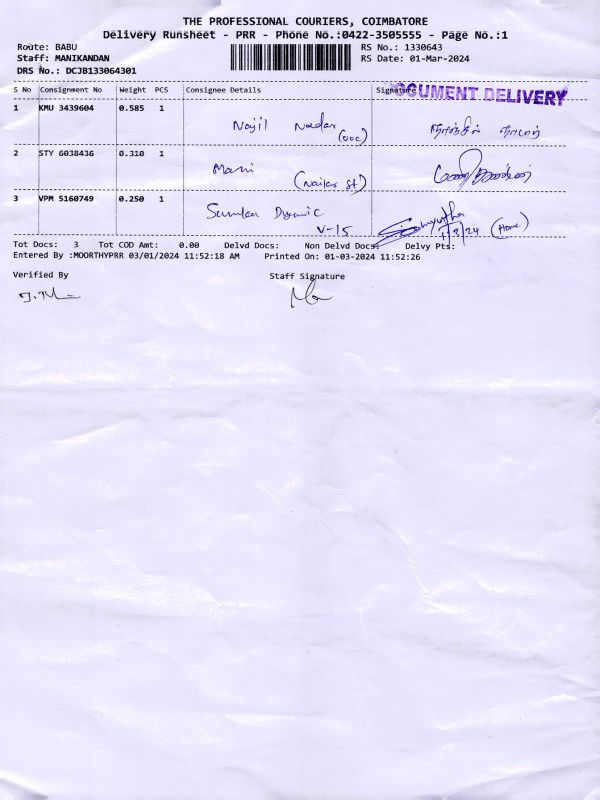 THE PROFESSIONAL COURIERS, COIMBATORE
Delivery Runsheet - PRR - Phone No.:0422-3505555 - Page No.:1
Route: BABU
Staff: MANIKANDAN
DRS No.: DCJB133064301
RS No.: 1330643
RS Date: 01-Mar-2024
S No Consignment No Weight PCS Consignee Details Signature
DOCUMENT DELIVERY
1 KMU 3439604 0.585 1
Nadar
2 STY 6038436 0.310 1
Mani
3 VPM 5160749 0.250 1
V-15
1/3/24 (Home)
Tot Docs: 3 Tot COD Amt: 0.00 Delvd Docs: Non Delvd Docs: Delvy Pts:
Entered By :MOORTHYPRR 03/01/2024 11:52:18 AM Printed On: 01-03-2024 11:52:26
Verified By Staff Signature